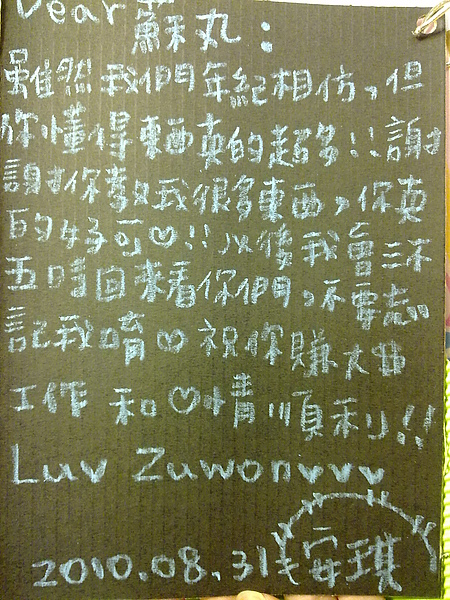 Dear 蘇丸：
雖然我們年紀相仿，但
你懂得東西真的超多!!謝
謝你教我很多東西，你真
的好可♡!!以後我會三不
五時回來看你們，不要忘
記我唷♡祝你賺大錢
工作和♡情順利!!
Luv Zuwon♥♥♥
2010.08.31 安琪